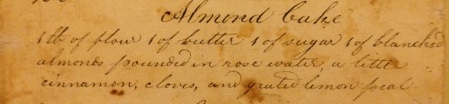 Almond Cake
1 lb of flour 1 of butter 1 of sugar 1 of blanched
almonds pounded in rose water, a little
cinnamon, cloves, and grated lemon peal